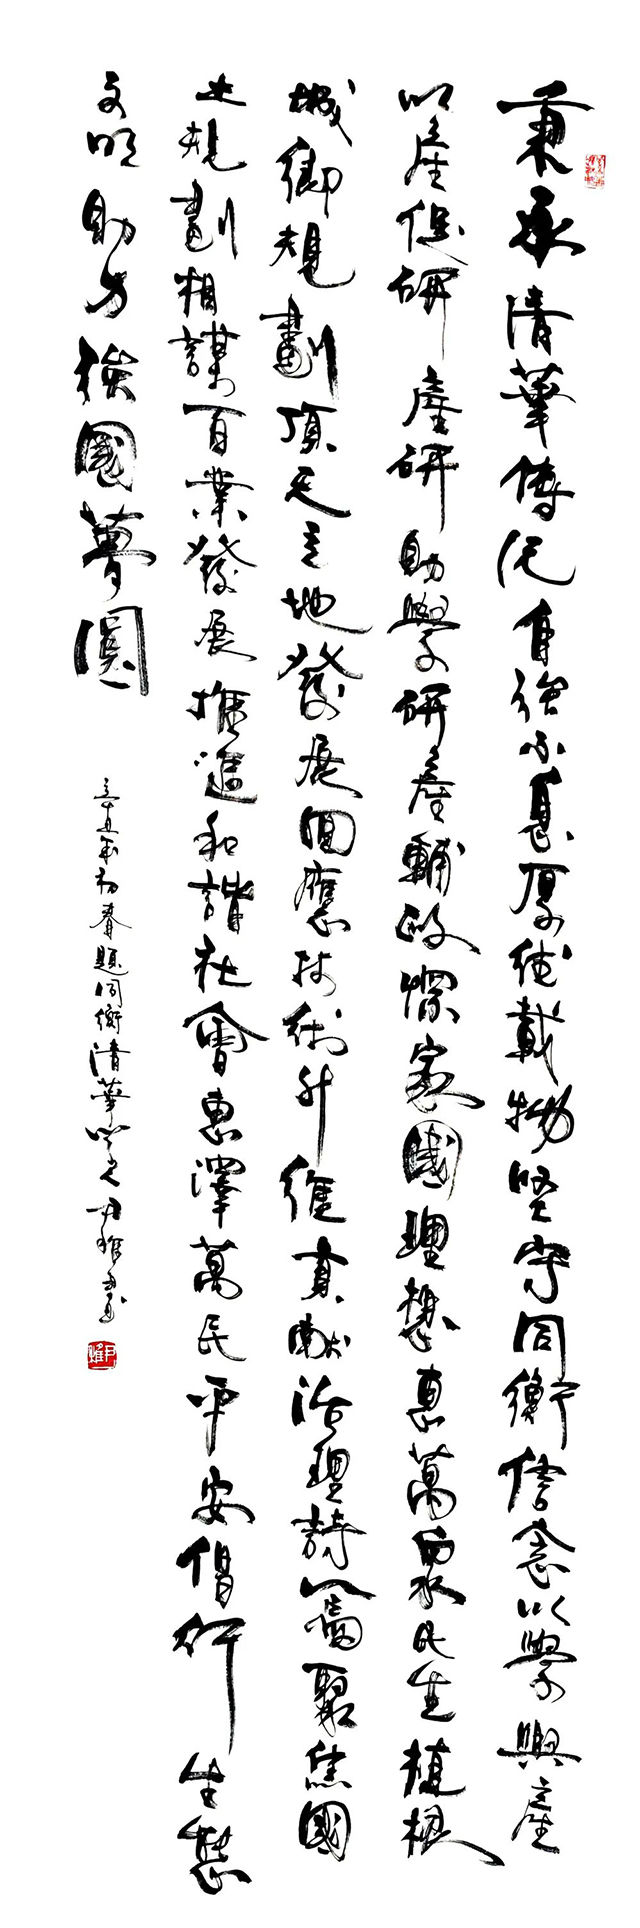 秉承清華傳统自強不息厚德載物坚守同衡信念以學興產
以產促研產研助學研產輔政懷家國理想惠萬眾民生植根
城鄉規劃頂天立地發展回應技術升維貢獻治理詩篇聚焦國
土規劃相謀百業發展推進和諧社會惠澤萬民平安偕行生態
文明助力強國夢圓
辛丑年初春題同衡清華 尹稚書
尹稚